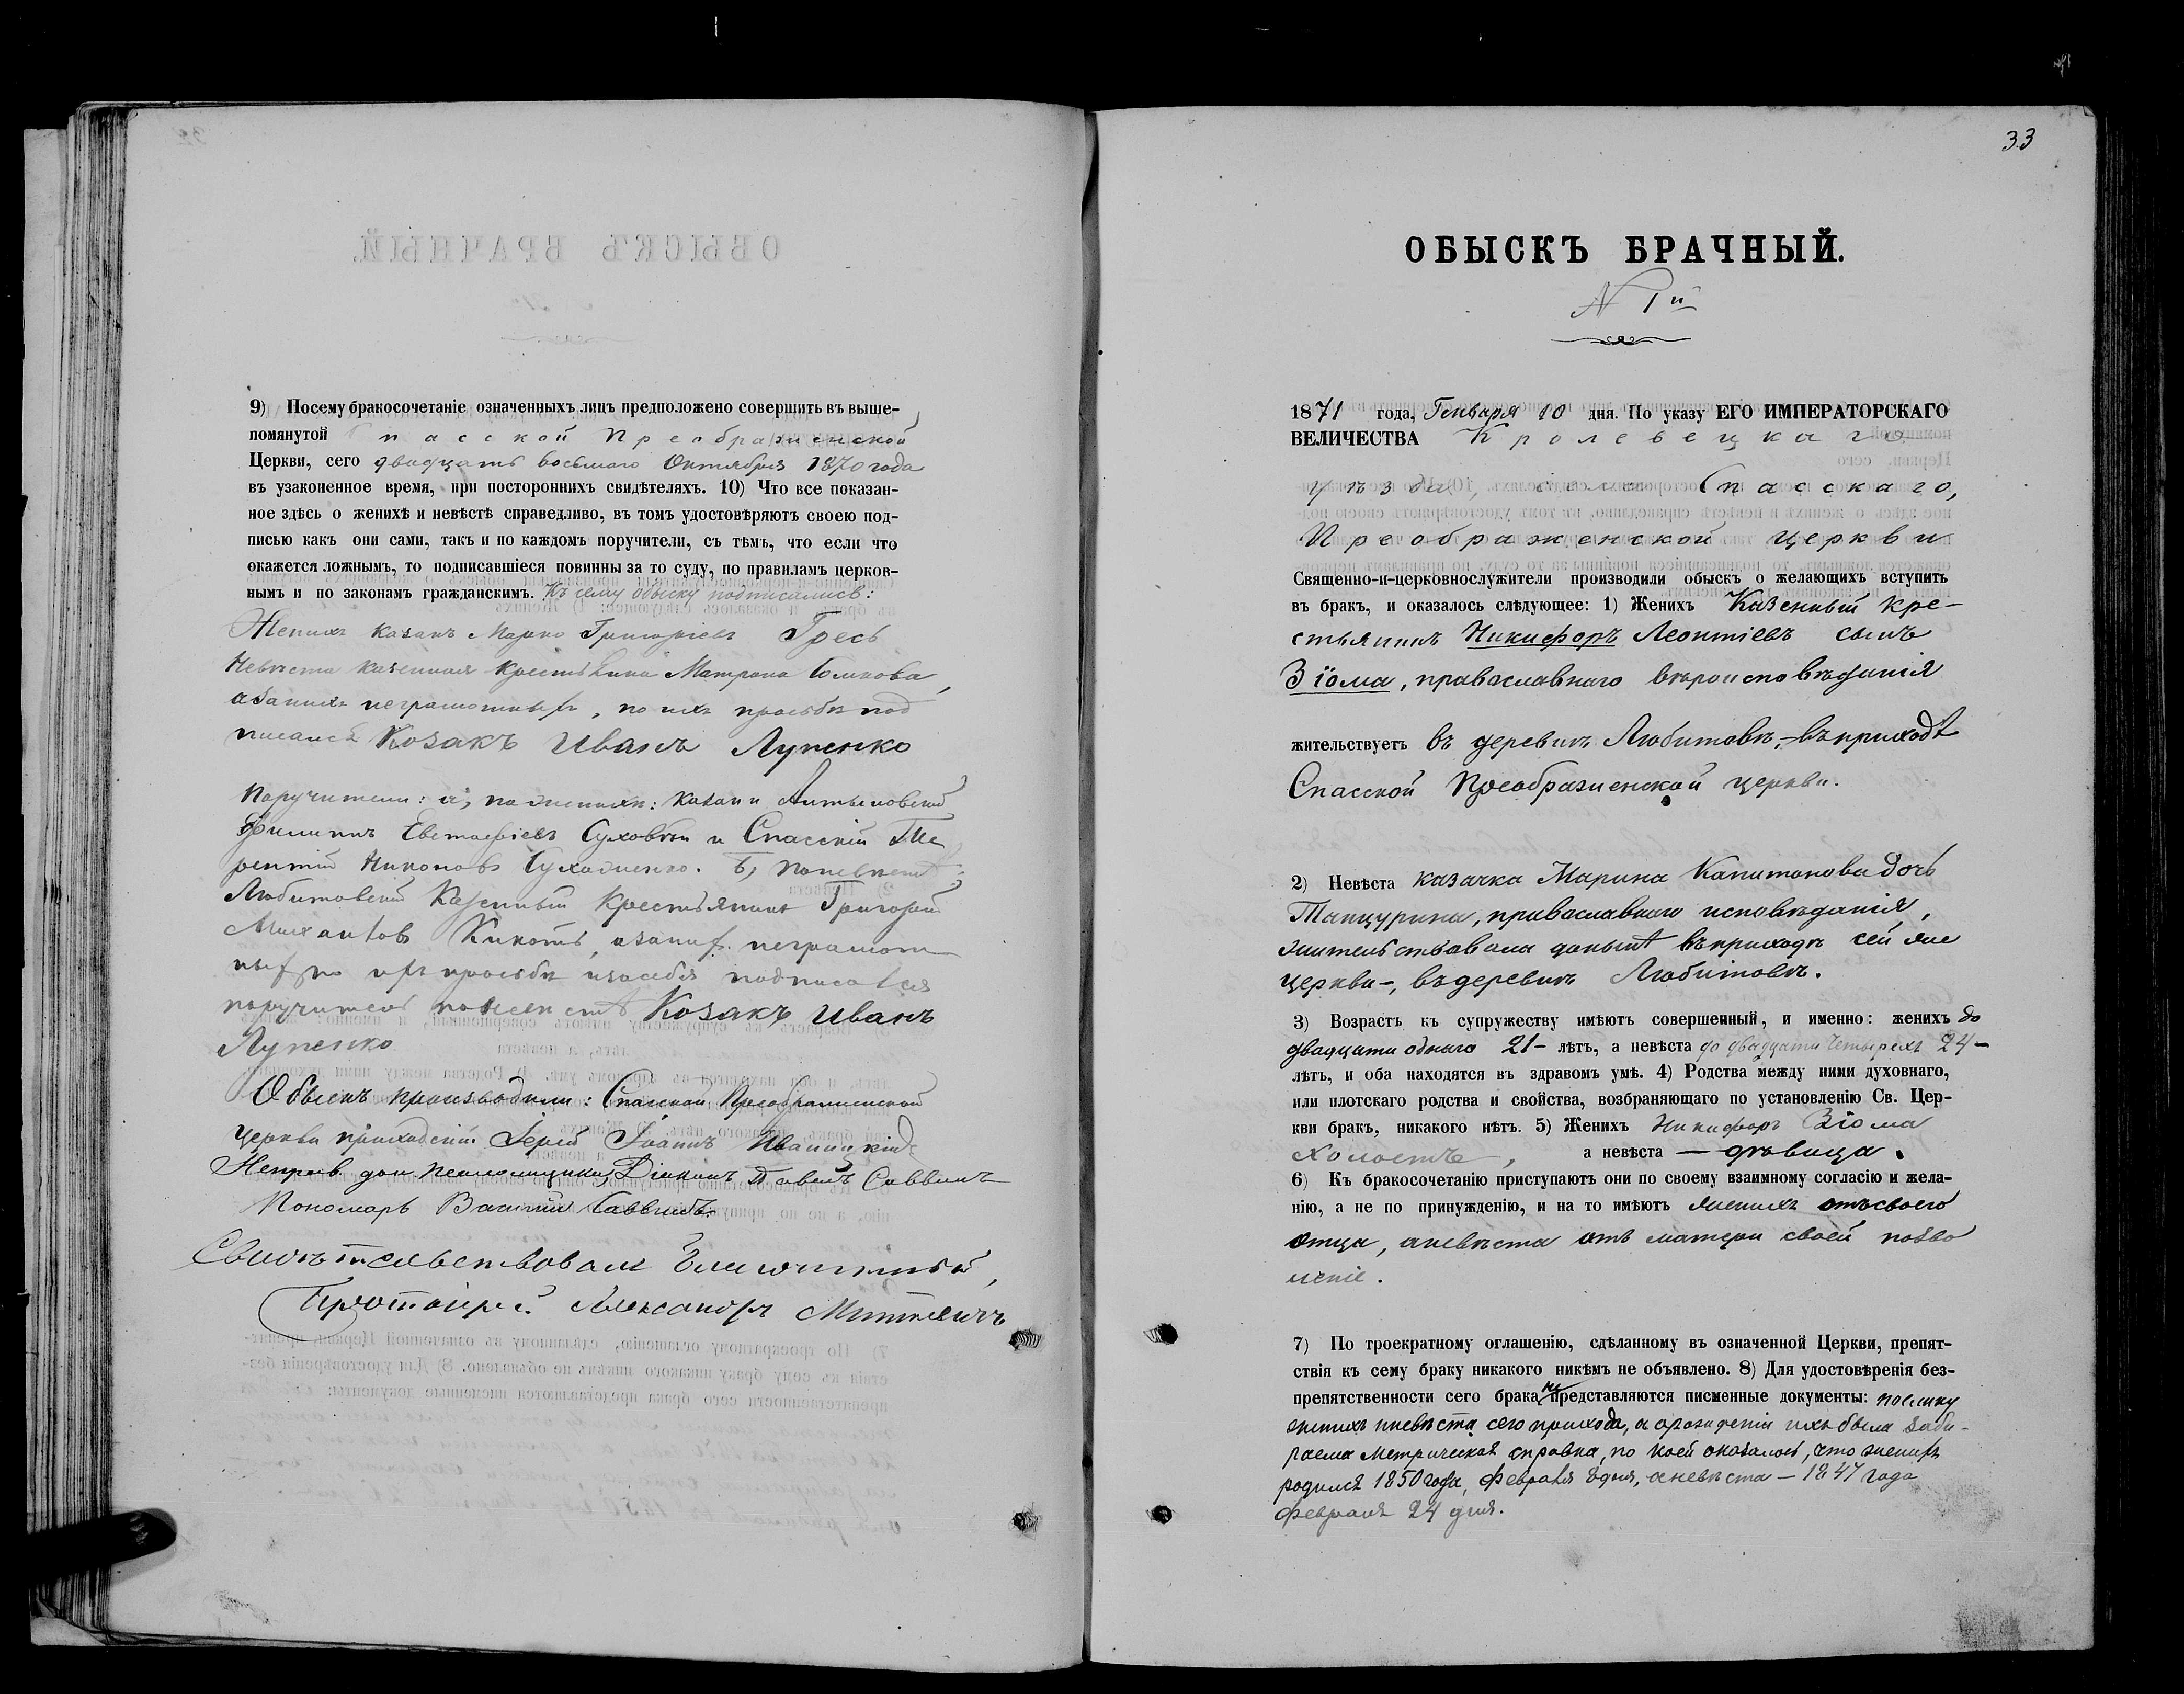 9) Посему бракосочетаніе означенныхъ лицъ предположено совершить въ выше-
помянутой Спасской Преображенской
Церкви, сего двадцать восьмаго Октября 1870 года
въ узаконенное время, при постороннихъ свидѣтеляхъ. 10) Что все показан-
ное здѣсь о женихѣ и невѣстѣ справедливо, въ томъ удостовѣряютъ своею под-
писью какъ они сами, такъ и по каждомъ поручители, съ тѣмъ, что если что
окажется ложнымъ, то подписавшіеся повинны за то суду, по правиламъ церков-
нымъ и по законамъ гражданскимъ. Къ сему обыску подписались:
Женихъ казакъ Марко Григоріевъ Гресь
Невѣста казенная крестьянка Матрона
неграмотныхъ, по ихъ прозьбѣ под
писался Козакъ Иванъ Лупенко
Поручители: а, по женихѣ: казаки
Филиппъ Евстафіевъ и Спасскій Те
рентій Никоновъ Сухоженко. б, по невѣстѣ:
Любитовскій Казенный Крестьянинъ Григорій
Михайловъ Кикоть, неграмот
ныхъ по ихъ прозьбѣ и за себя подписался
поручитель по невѣстѣ Козакъ Иванъ
Лупенко
Обыскъ производили: Спасской Преображенской
церкви приходскій Іерей Іоаннъ Иваницкій
Діаконъ Павелъ Саввинъ
Пономарь Василій Саввинъ
Свидѣтельствовалъ Благочинный,
Протоіерей Александръ Миткевичъ
33
ОБЫСКЪ БРАЧНЫЙ.
N 1й
1871 года, Генваря 10 дня. По указу ЕГО ИМПЕРАТОРСКАГО
ВЕЛИЧЕСТВА Кролевецкаго
уѣзда, села Спасскаго,
Преображенской церкви
Священно-и-церковнослужители производили обыскъ о желающихъ вступить
въ бракъ, и оказалось слѣдующее: 1) Женихъ Казенный кре-
стьянинъ Никифоръ Леонтіевъ сынъ
Зіома, православнаго вѣроисповѣданія
жительствуетъ въ деревнѣ Любитовкѣ,-въ приходѣ
Спасской Преображенской церкви.
2) Невѣста казачка Марина Капитонова дочь
Танцурина, православнаго исповѣданія,
жительствовала донынѣ въ приходѣ сей же
церкви-, въ деревнѣ Любитовкѣ.
3) Возрастъ къ супружеству имѣютъ совершенный, и именно: женихъ до
двадцати однаго 21- лѣтъ, а невѣста до двадцати четырехъ 24-
лѣтъ, и оба находятся въ здравомъ умѣ. 4) Родства между ними духовнаго,
или плотскаго родства и свойства, возбраняющаго по установленію Св. Цер-
кви бракъ, никакого нѣтъ. 5) Женихъ Никифоръ Зіома
холостъ, а невѣста — дѣвица.
6) Къ бракосочетанію приступаютъ они по своему взаимному согласію и жела-
нію, а не по принужденію, и на то имѣютъ женихъ отъ своего
отца, а невѣста отъ матери своей позво
леніе.
7) По троекратному оглашенію, сдѣланному въ означенной Церкви, препят-
ствія къ сему браку никакого никѣмъ не объявлено. 8) Для удостовѣренія без-
препятственности сего брака не представляются писменные документы: поелику
женихъ и невѣста сего прихода, а о рожденіи ихъ была заби-
раема метрическая справка, по коей оказалось, что женихъ
родился 1850 года, Февраля 8 дня, а невѣста — 1847 года
Февраля 24 дня.